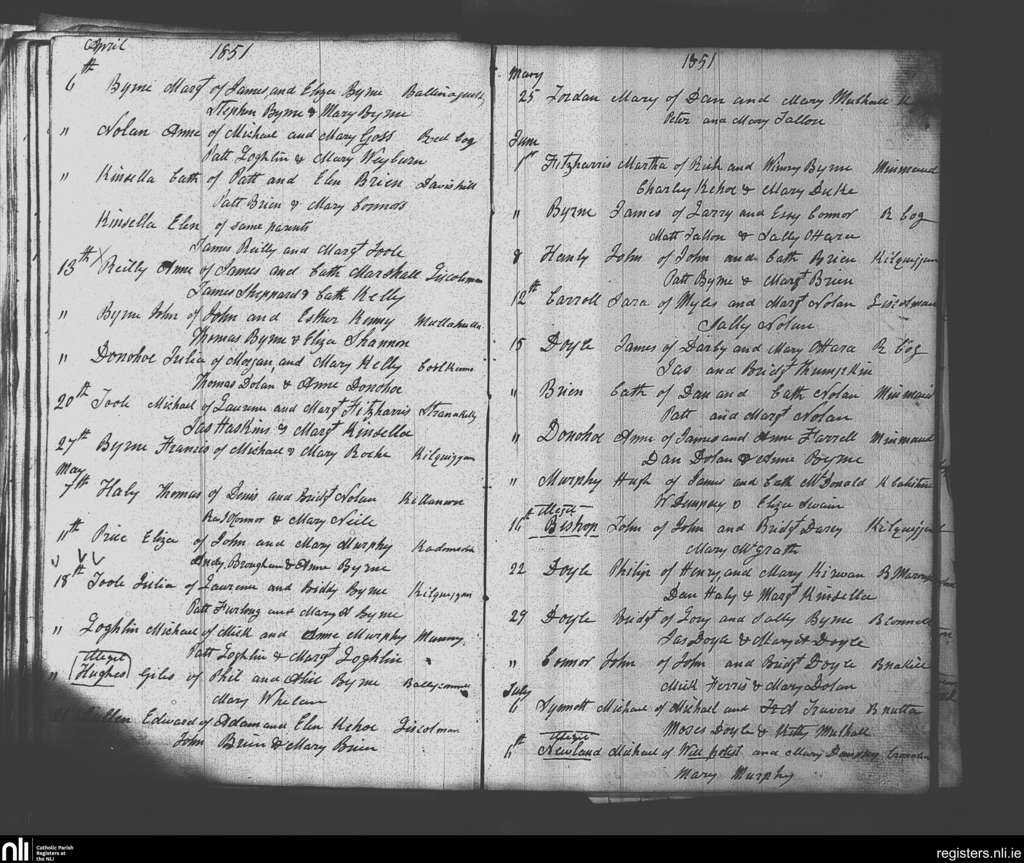 April 1851
6th Byrne Margt of James and Eliza Byrne
Stephen Byrne & Mary Byrne
" Nolan Anne of Michael and Mary Goss Red Cog
Patt Loghlin & Mary Weyburn
" Kinsella Cath of Patt and Elen Brien Davishill
Patt Brien & Mary Connors
Kinsella Elen of same parents
James Reilly and Margt Toole
13th Reilly Anne of James and Cath Marshall Liscolman
James Sheppard & Cath Kelly
" Byrne John of John and Esther Kenny Mullahulla
Thomas Byrne & Eliza Shannon
" Donohoe Julia of Morgan and Mary Kelly
Thomas Dolan & Anne Donohoe
20th Toole Michael of Laurence and Margt Fitzharris Stranakelly
Jas Haskins & Margt Kinsella
27th Byrne Francis of Michael & Mary Roche Kilquiggan
May
7th Haly Thomas of Denis and Bridgt Nolan Killanure
O'Connor & Mary Neile
11th Price Eliza of John and Mary Murphy
Andy Broughan & Anne Byrne
18th Toole Julia of Laurence and Biddy Byrne Kilquiggan
Patt Furlong and Mary A Byrne
" Loghlin Michael of Mick and Anne Murphy Munny
Patt Loghlin & Margt Loghlin
Illegit
" Hughes Giles of Phil and Byrne
Mary Whelan
Edward of Adam and Elen Kehoe Liscolman
John Brien & Mary Brien
1851
May
25 Jordan Mary of Dan and Mary Mulhall
Peter and Mary Fallon
June
1st Fitzharris Martha of Rich and Winny Byrne
Charley Kehoe & Mary Duke
" Byrne James of Larry and Essy Connor R Cog
Matt Fallon & Sally O'Hara
8 Hanly John of John and Cath Brien Kilquiggan
Patt Byrne & Margt Brien
12th Carroll Sara of Myles and Margt Nolan Liscolman
Sally Nolan
15 Doyle James of Darby and Mary O'Hara R Cog
Jas and Bridgt Thumpkin
" Brien Cath of Dan and Cath Nolan
Patt and Margt Nolan
" Donohoe Anne of James and Anne Farrell
Dan Dolan & Anne Byrne
" Murphy Hugh of James and Cath McDonald
W Dempsey & Eliza Swain
Illegit
16th Bishop John of John and Bridgt Darcy Kilquiggan
Mary McGrath
22 Doyle Philip of Henry and Mary Kirwan
Dan Haly & Margt Kinsella
29 Doyle Bridgt of Lory and Sally Byrne
Jas Doyle & Mary Doyle
" Connor John of John and Bridgt Doyle
Mick Ferris & Mary Dolan
July
6 Synnott Michael of Michael and Travers
Moses Doyle & Kitty Mulhall
Illegit
6th Newland Michael of Will and Mary Dempsey
Mary Murphy
nli Catholic Parish
Registers at
the NLI
registers.nli.ie